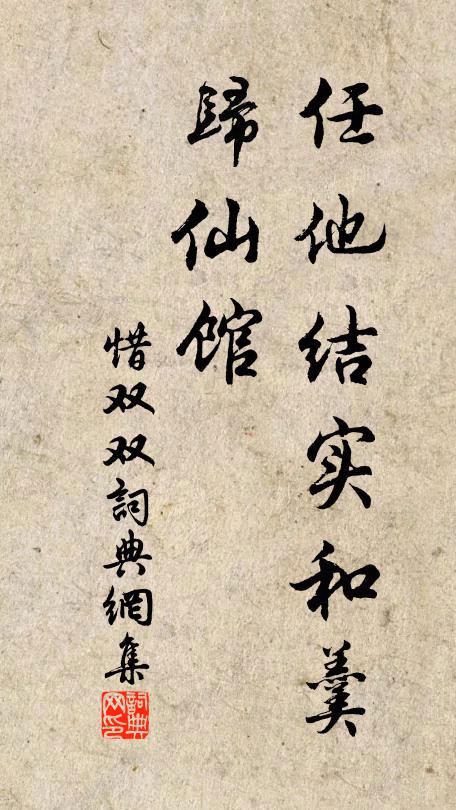 任他结实和羹
歸仙馆
惜双双詞典網集
詞典网印